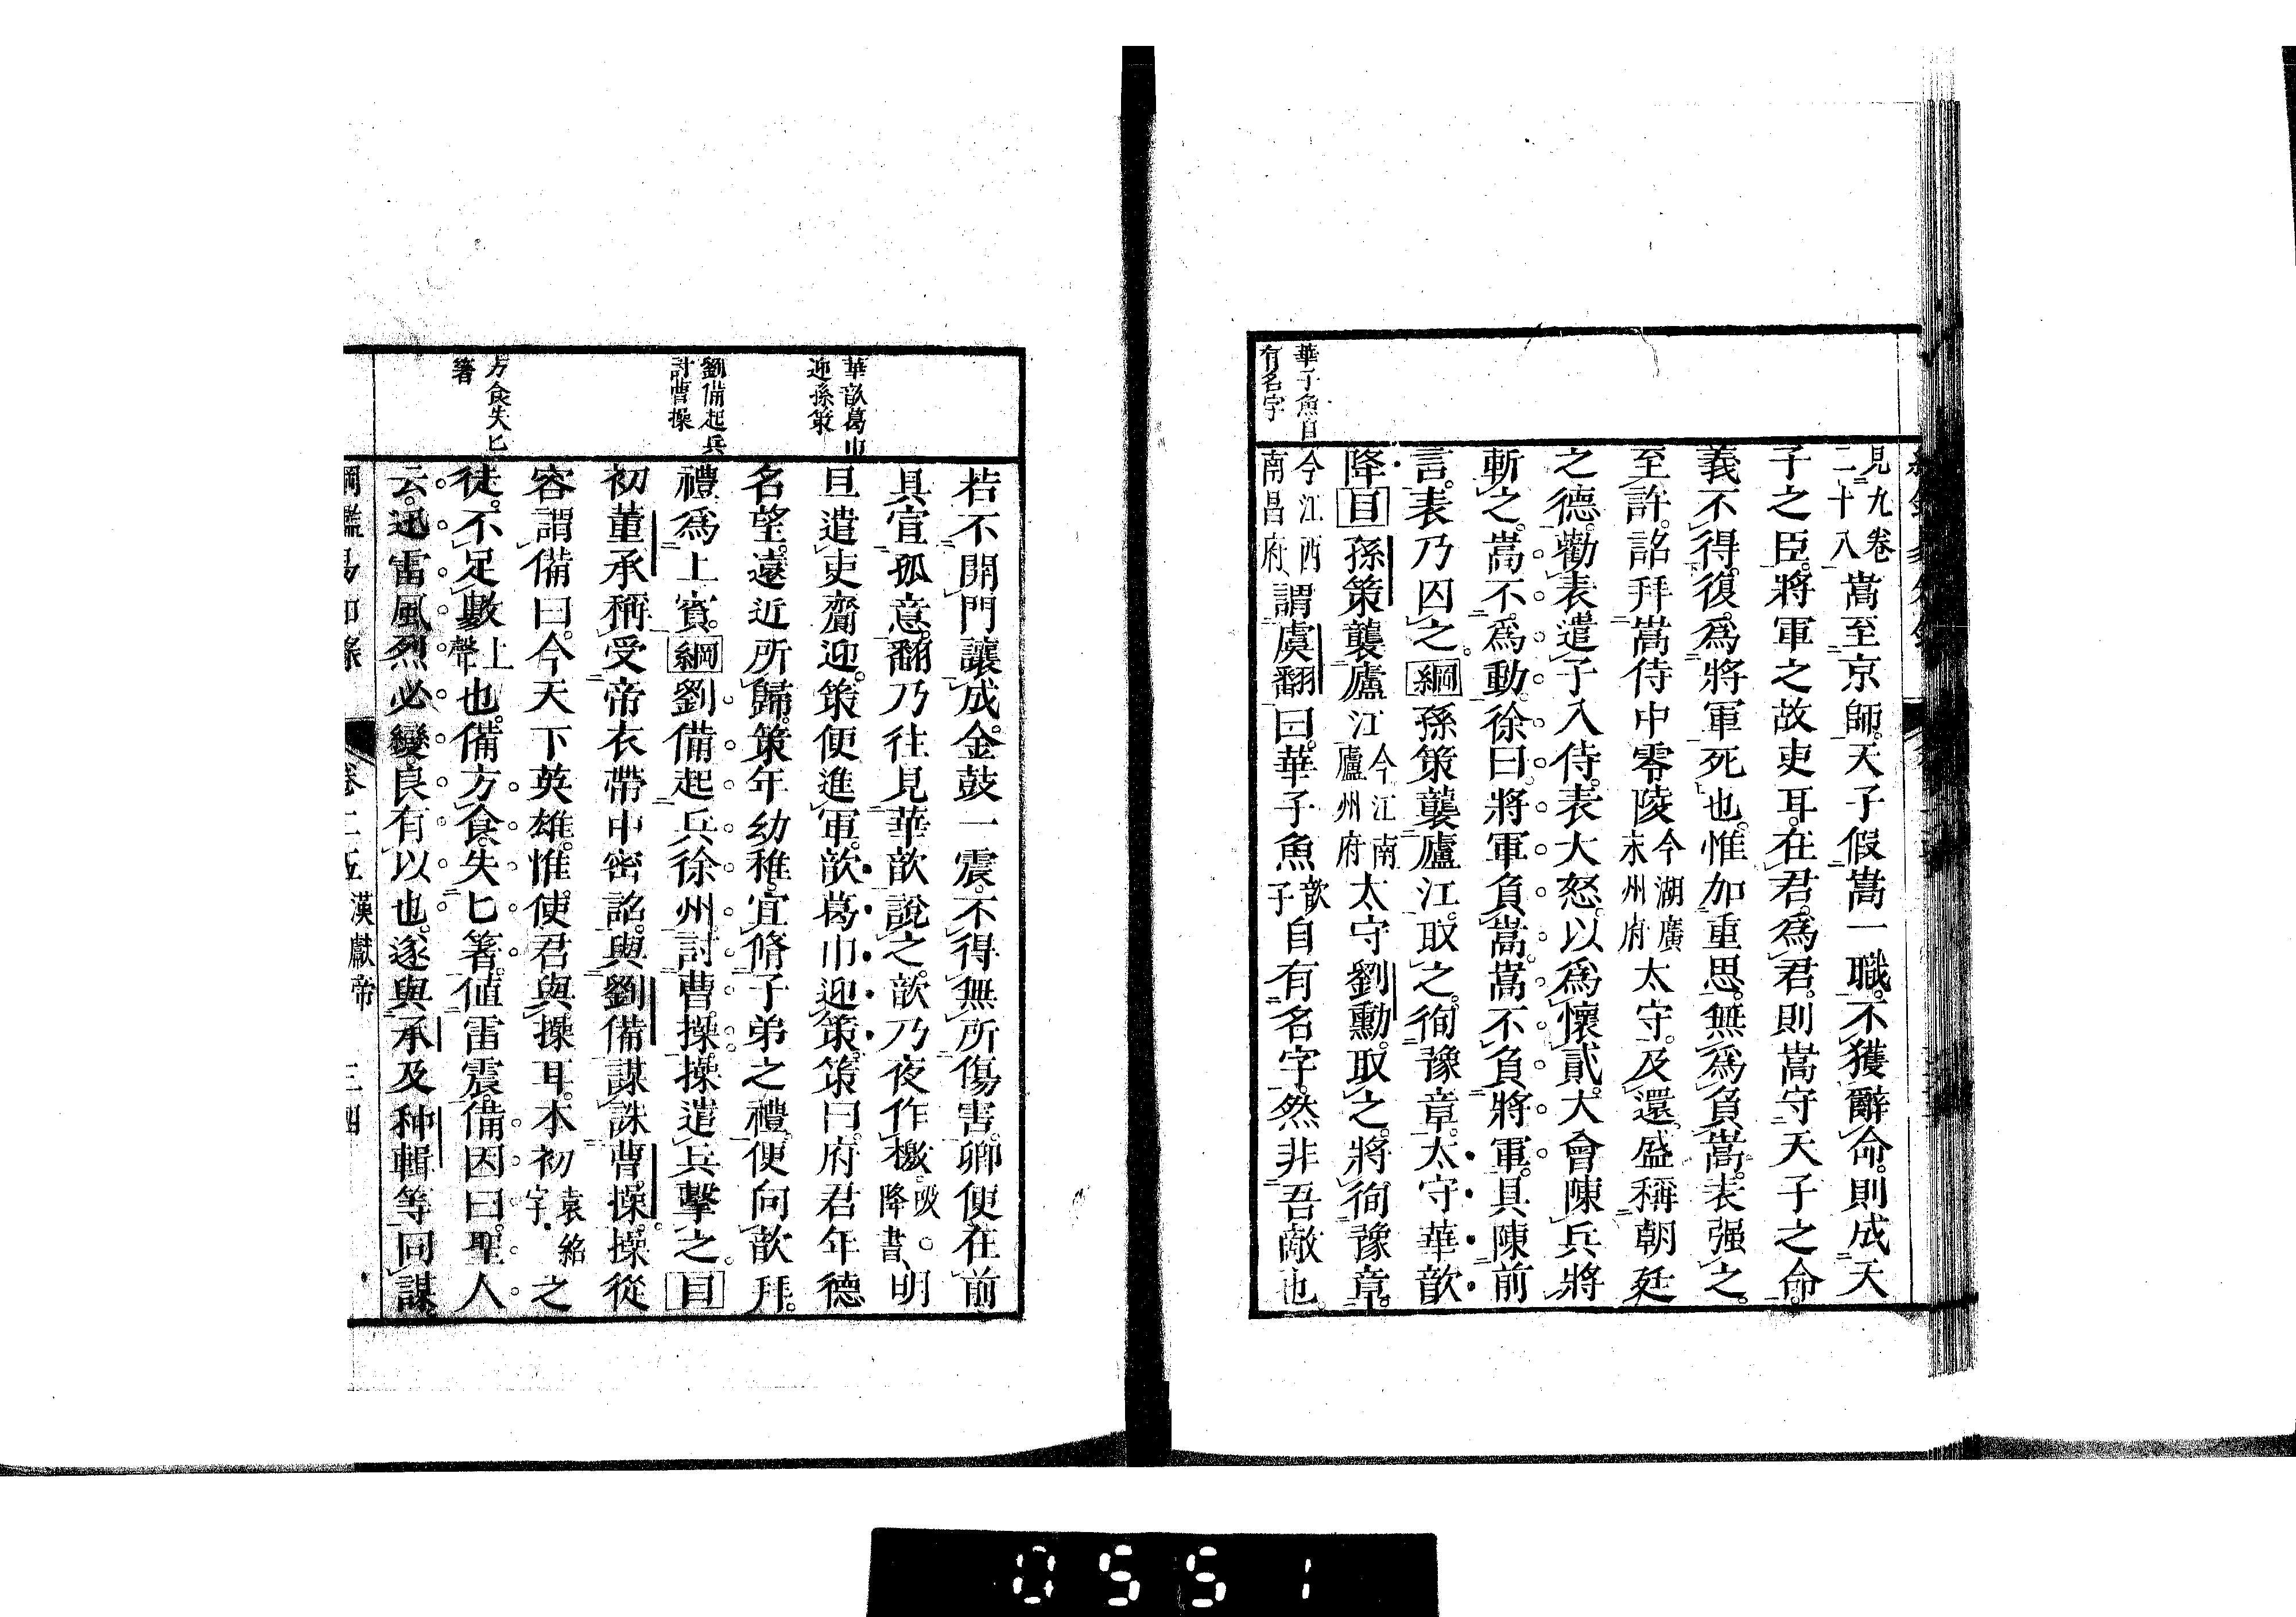 華子魚自
有名字
見九卷二十八嵩至京師。天子假嵩一職。不獲辭命。則成天
子之臣。將軍之故吏耳。在君爲君。則嵩守天子之命。
義不得復爲將軍死也。惟加重思。無爲負嵩。表强之。
至許。詔拜嵩侍中零陵今湖廣永州府太守。及還。盛稱朝廷
之德。勸表遣子入侍。表大怒。以爲懷貳。大會陳兵。將
斬之。嵩不爲動。徐曰。將軍負嵩。嵩不負將軍。具陳前
言。表乃囚之。綱孫策襲廬江。取之。徇豫章。太守華歆
降。目孫策襲廬江今江南廬州府太守劉勳。取之。將徇豫章。
今江西南昌府謂虞翻曰。華子魚歆子自有名字。然非吾敵也。
華歆葛巾
迎孫策
劉備起兵
討曹操
方食失匕
箸
若不開門讓成。金鼓一震。不得無所傷害。卿便在前
具宣孤意。翻乃往見華歆說之。歆乃夜作檄。降書明
旦遣吏齎迎。策便進軍。歆葛巾迎策。策曰。府君年德
名望。遠近所歸。策年幼稚。宜脩子弟之禮。便向歆拜。
禮爲上賓。綱劉備起兵徐州討曹操。操遣兵擊之。目
初董承稱受帝衣帶中密詔。與劉備謀誅曹操。操從
容謂備曰。今天下英雄。惟使君與操耳。本初袁紹字之
徒。不足數上聲也。備方食。失匕箸。値雷震。備因曰。聖人
云。迅雷風烈必變。良有以也。遂與承及种輯等同謀。
卷二五 漢獻帝 三四
0551